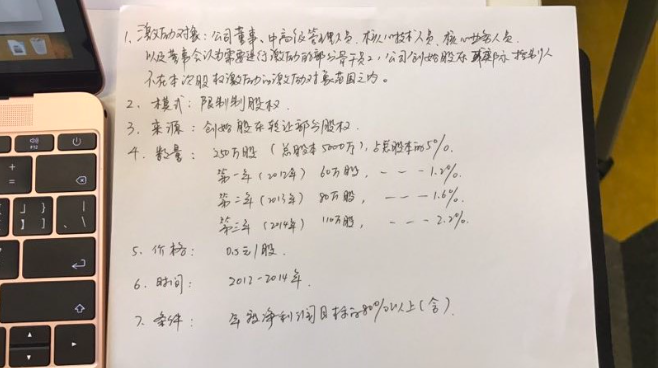 1、激励对象：公司董事、中高级管理人员、核心技术人员、核心业务人员
以及董事会认为需要进行激励的部分骨干员工，公司创始股东 实际控制人
不在本次股权激励的激励对象范围之内。
2、模式：限制制股权
3、来源：创始股东转让部分股权
4、数量：250万股（总股本5000万），占总股本的5%.
第一年（2012年）60万股， - - - 1.2%.
第二年（2013年）80万股， - - - 1.6%.
第三年（2014年）110万股， - - - 2.2%.
5、价格：0.5元/股
6、时间：2012-2014年.
7、条件：年 净利润目标的80%以上（含）
fn